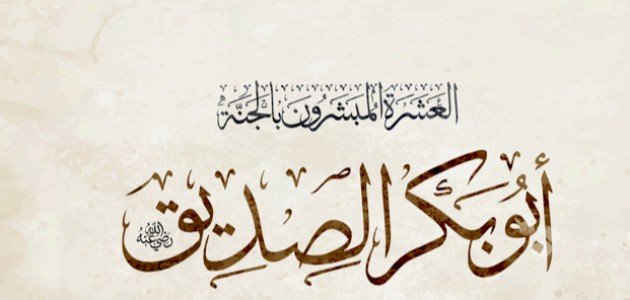 العشرة المبشرون بالجنة
أبو بكر الصديق رضي الله عنه